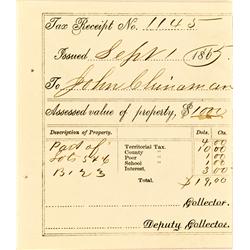 Tax Receipt No. 1145
Issued Sept 1 1865
To John Chinaman
Assessed value of property, $1000
Description of Property. Dols. Cts.
Part of Territorial Tax. 4 00
Lots 5 & 6 County " 10 00
B 123 Poor " 1 00
School " 1 00
Interest, 3 00
Total. $19,00
Collector.
Deputy Collector.